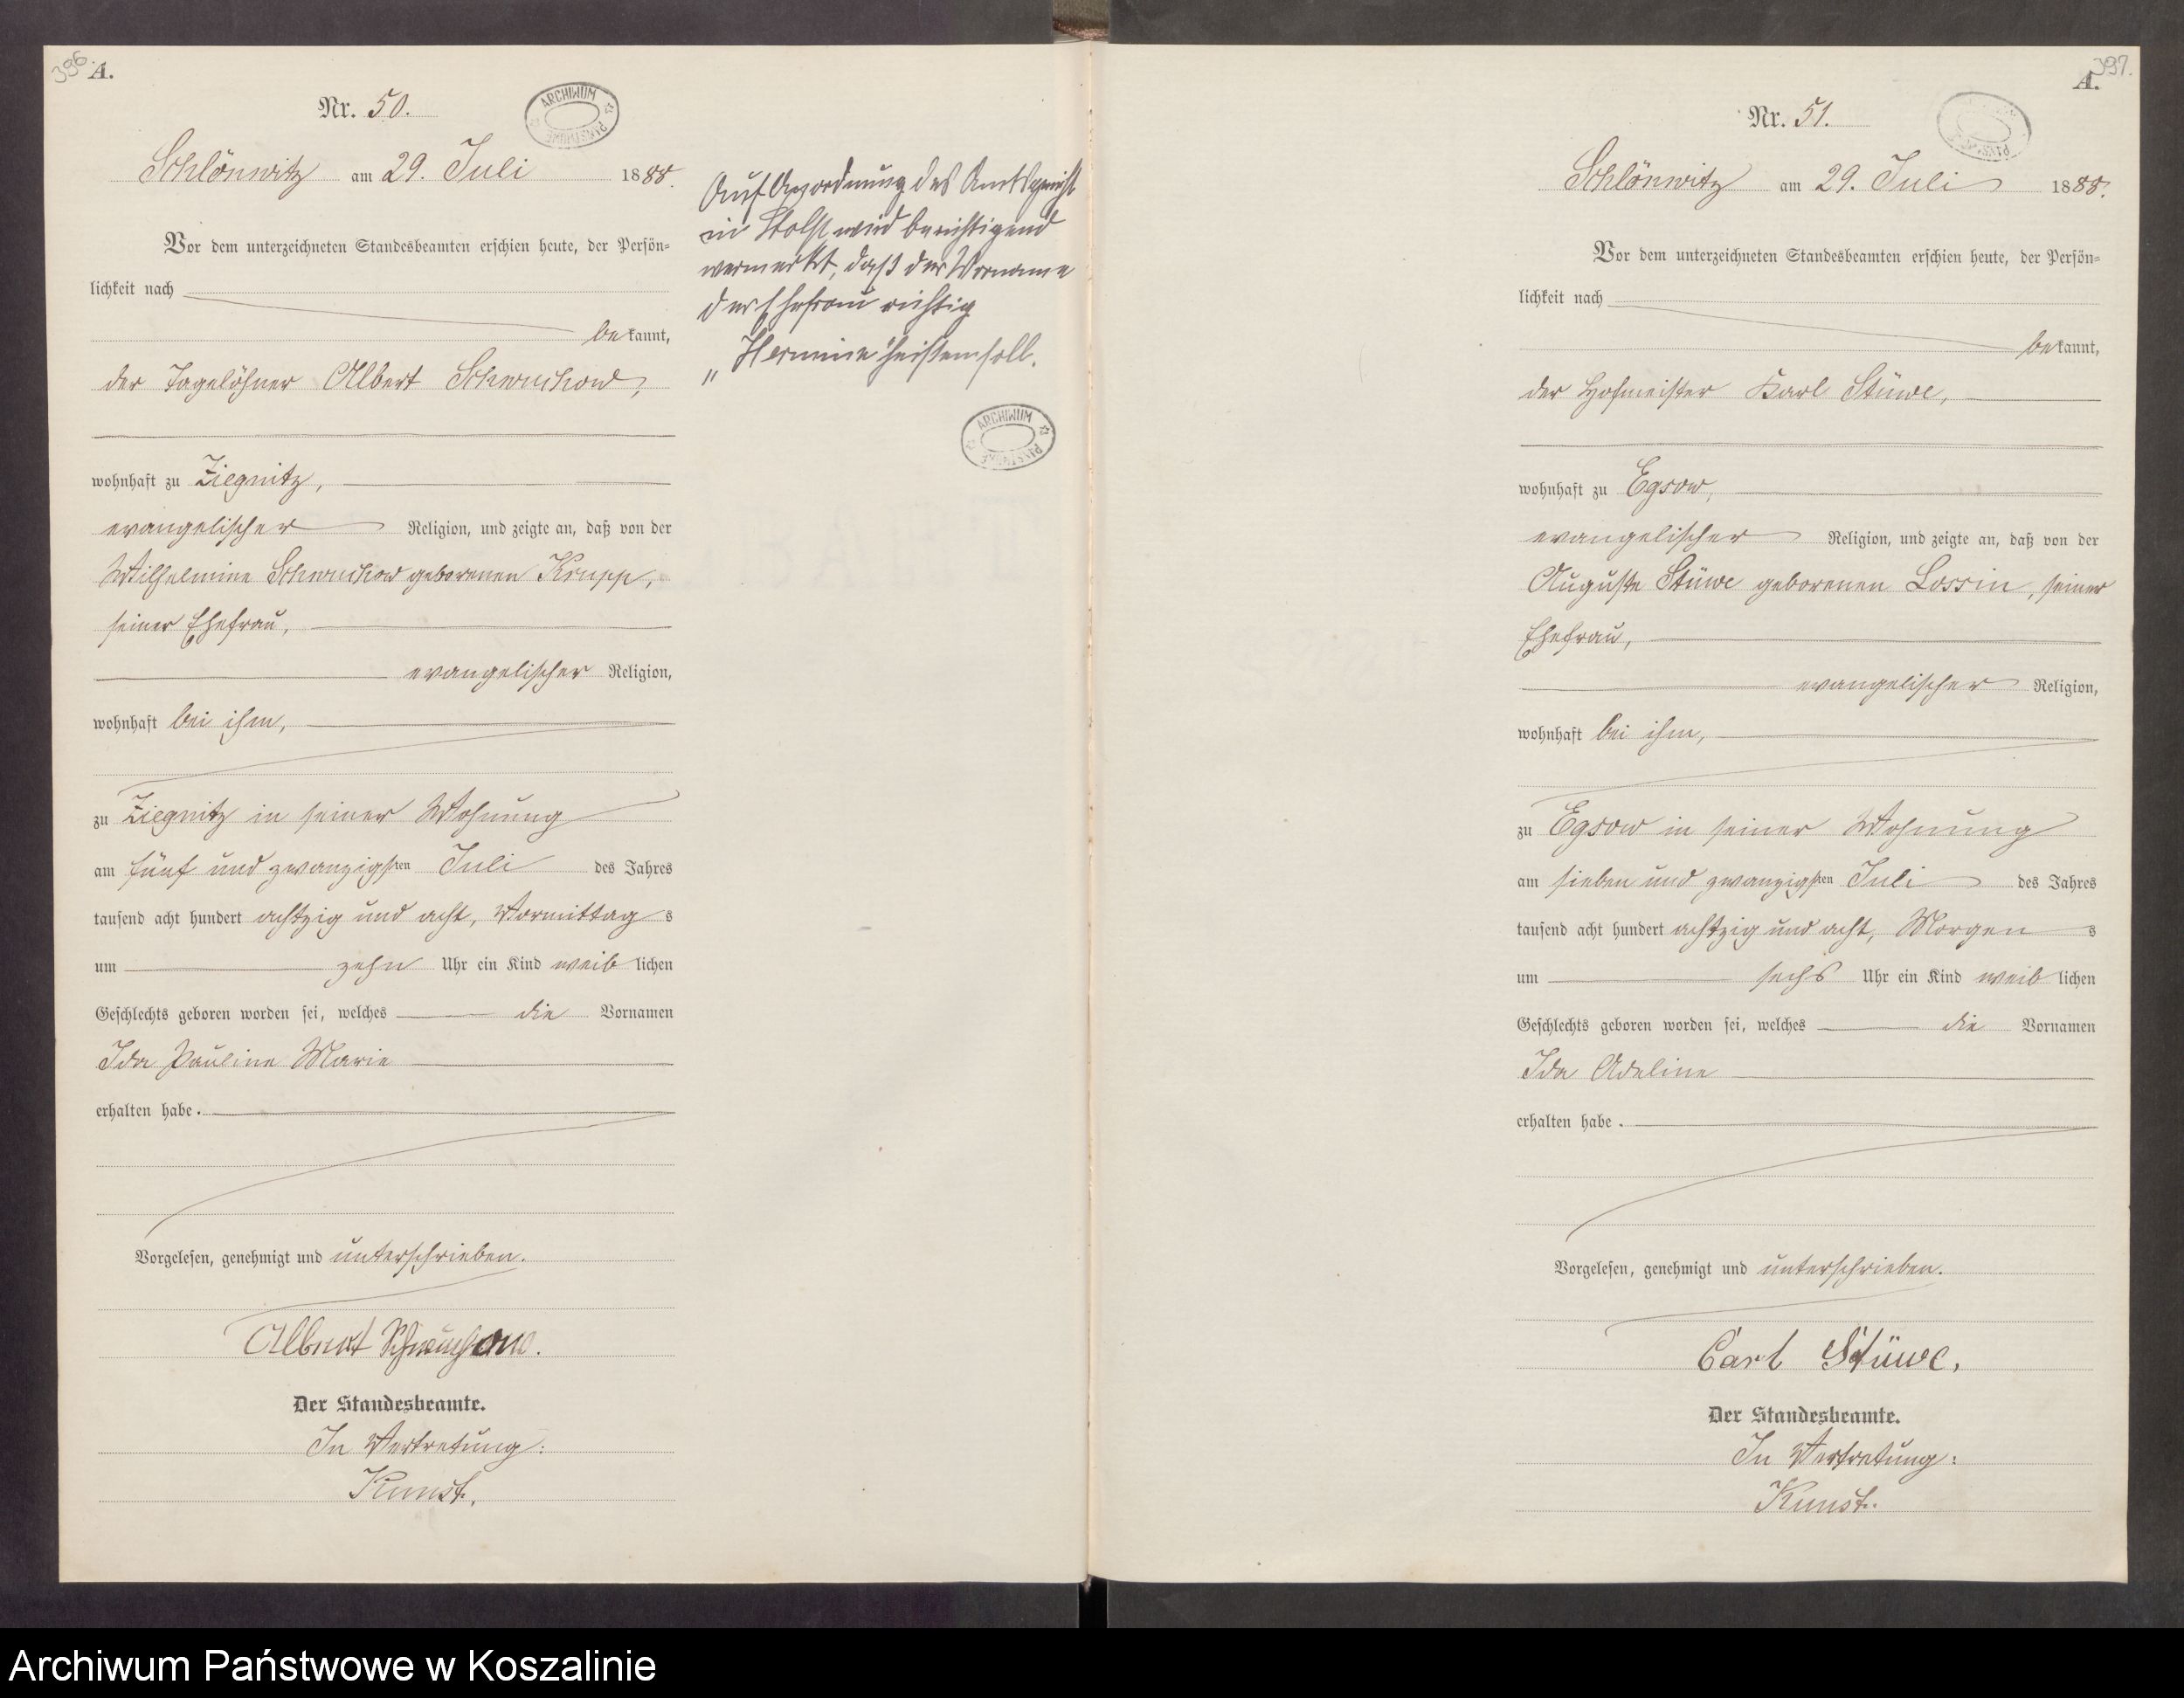 396.
A.
Nr. 50.
ARCHIWUM PAŃSTWOWE
Schlönwitz am 29. Juli 1888.
Vor dem unterzeichneten Standesbeamten erschien heute, der Persön-
lichkeit nach
bekannt,
der Tagelöhner Albert Schwuchow,
wohnhaft zu Ziegnitz,
evangelischer Religion, und zeigte an, daß von der
Wilhelmine Schwuchow geborenen Krupp,
seiner Ehefrau,
evangelischer Religion,
wohnhaft bei ihm,
zu Ziegnitz in seiner Wohnung
am fünf und zwanzigsten Juli des Jahres
tausend acht hundert achtzig und acht, Vormittags
um zehn Uhr ein Kind weiblichen
Geschlechts geboren worden sei, welches die Vornamen
Ida Pauline Marie
erhalten habe.
Vorgelesen, genehmigt und unterschrieben.
Albert Schwuchow.
Der Standesbeamte.
In Vertretung:
Kunst.
Auf Anordnung des Amtsgericht
in Stolp wird berichtigend
vermerkt, daß der Vorname
der Ehefrau richtig
„Hermine" heißen soll.
ARCHIWUM PAŃSTWOWE
397.
A.
Nr. 51.
Schlönwitz am 29. Juli 1888.
Vor dem unterzeichneten Standesbeamten erschien heute, der Persön-
lichkeit nach
bekannt,
der Hofmeister Karl Stüwe,
wohnhaft zu Egsow,
evangelischer Religion, und zeigte an, daß von der
Auguste Stüwe geborenen Lossin, seiner
Ehefrau,
evangelischer Religion,
wohnhaft bei ihm,
zu Egsow in seiner Wohnung
am sieben und zwanzigsten Juli des Jahres
tausend acht hundert achtzig und acht, Morgens
um sechs Uhr ein Kind weiblichen
Geschlechts geboren worden sei, welches die Vornamen
Ida Adeline
erhalten habe.
Vorgelesen, genehmigt und unterschrieben.
Carl Stüwe,
Der Standesbeamte.
In Vertretung:
Kunst.
Archiwum Państwowe w Koszalinie